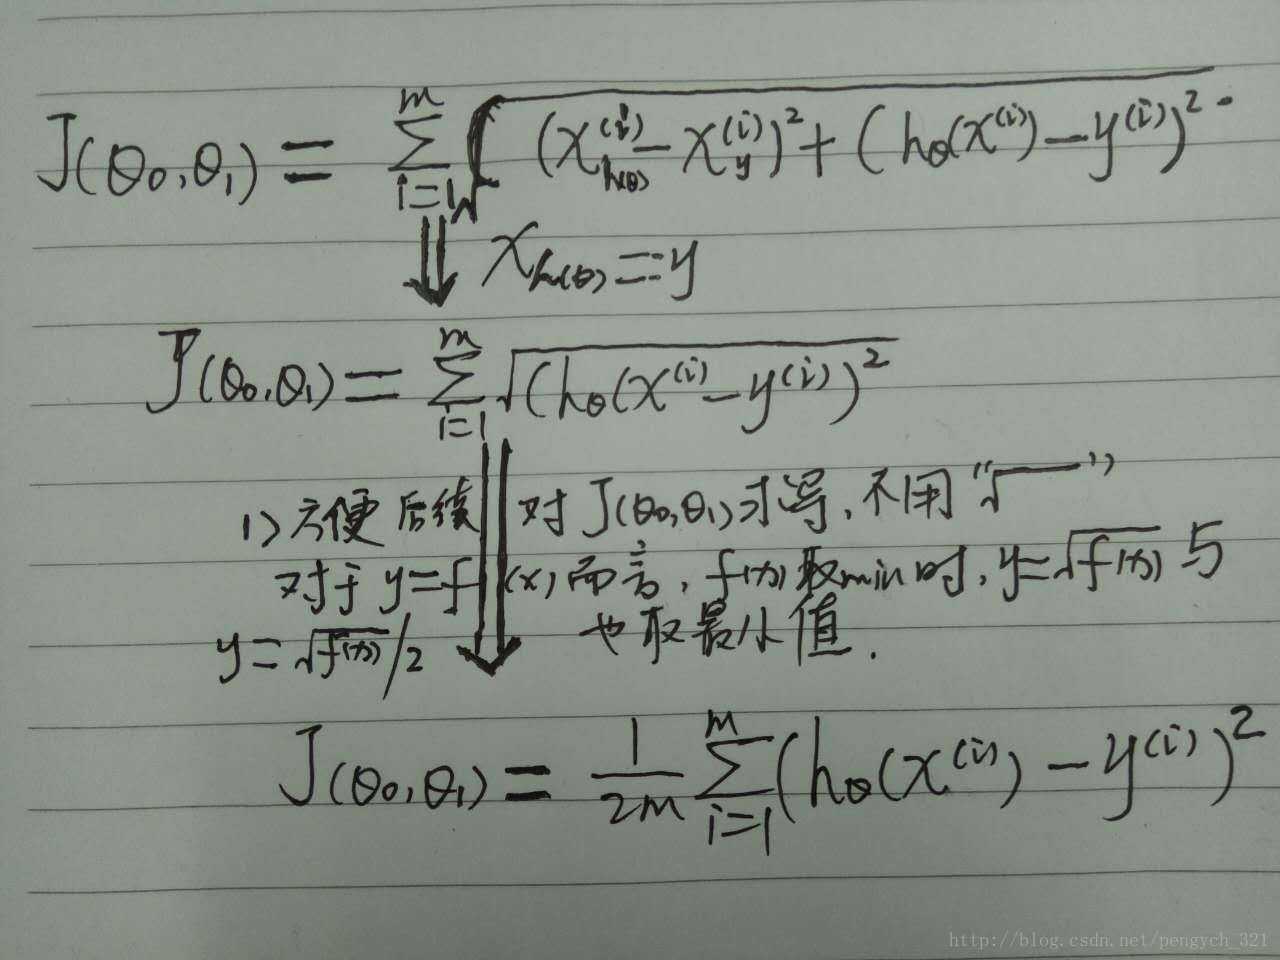 J(θ₀,θ₁) = ∑_{i=1}^{m} √((x_{h(θ)}^{(i)} − x_y^{(i)})² + (h_θ(x^{(i)}) − y^{(i)})²
⇓ x_{h(θ)} = y
J(θ₀,θ₁) = ∑_{i=1}^{m} √((h_θ(x^{(i)} − y^{(i)})²
1) 方便后续 对 J(θ₀,θ₁) 求导, 不用 "√"
对于 y=f(x) 而言, f(x) 取 min 时, y=√f(x) 与
y=√f(x)/2 也取最小值.
J(θ₀,θ₁) = \frac{1}{2m} ∑_{i=1}^{m} (h_θ(x^{(i)}) − y^{(i)})²
http://blog.csdn.net/pengych_321